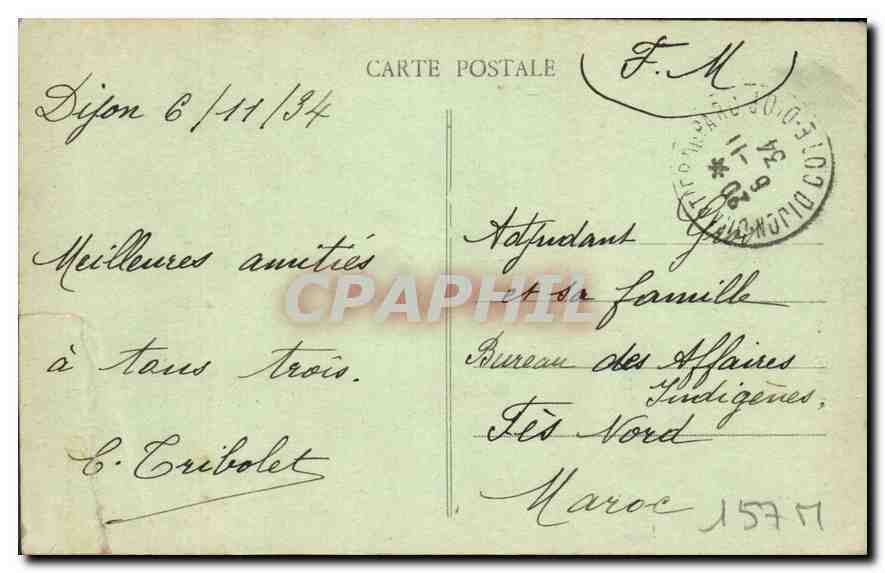 CARTE POSTALE
F. M
Dijon 6/11/34
Meilleures amitiés
à tous trois.
C. Tribolet
Adjudant
et sa famille
Bureau des Affaires
Indigènes.
Fès Nord
Maroc
157 M
CPAPHIL
DIJON
COTE-D'OR
20
9 -11
34